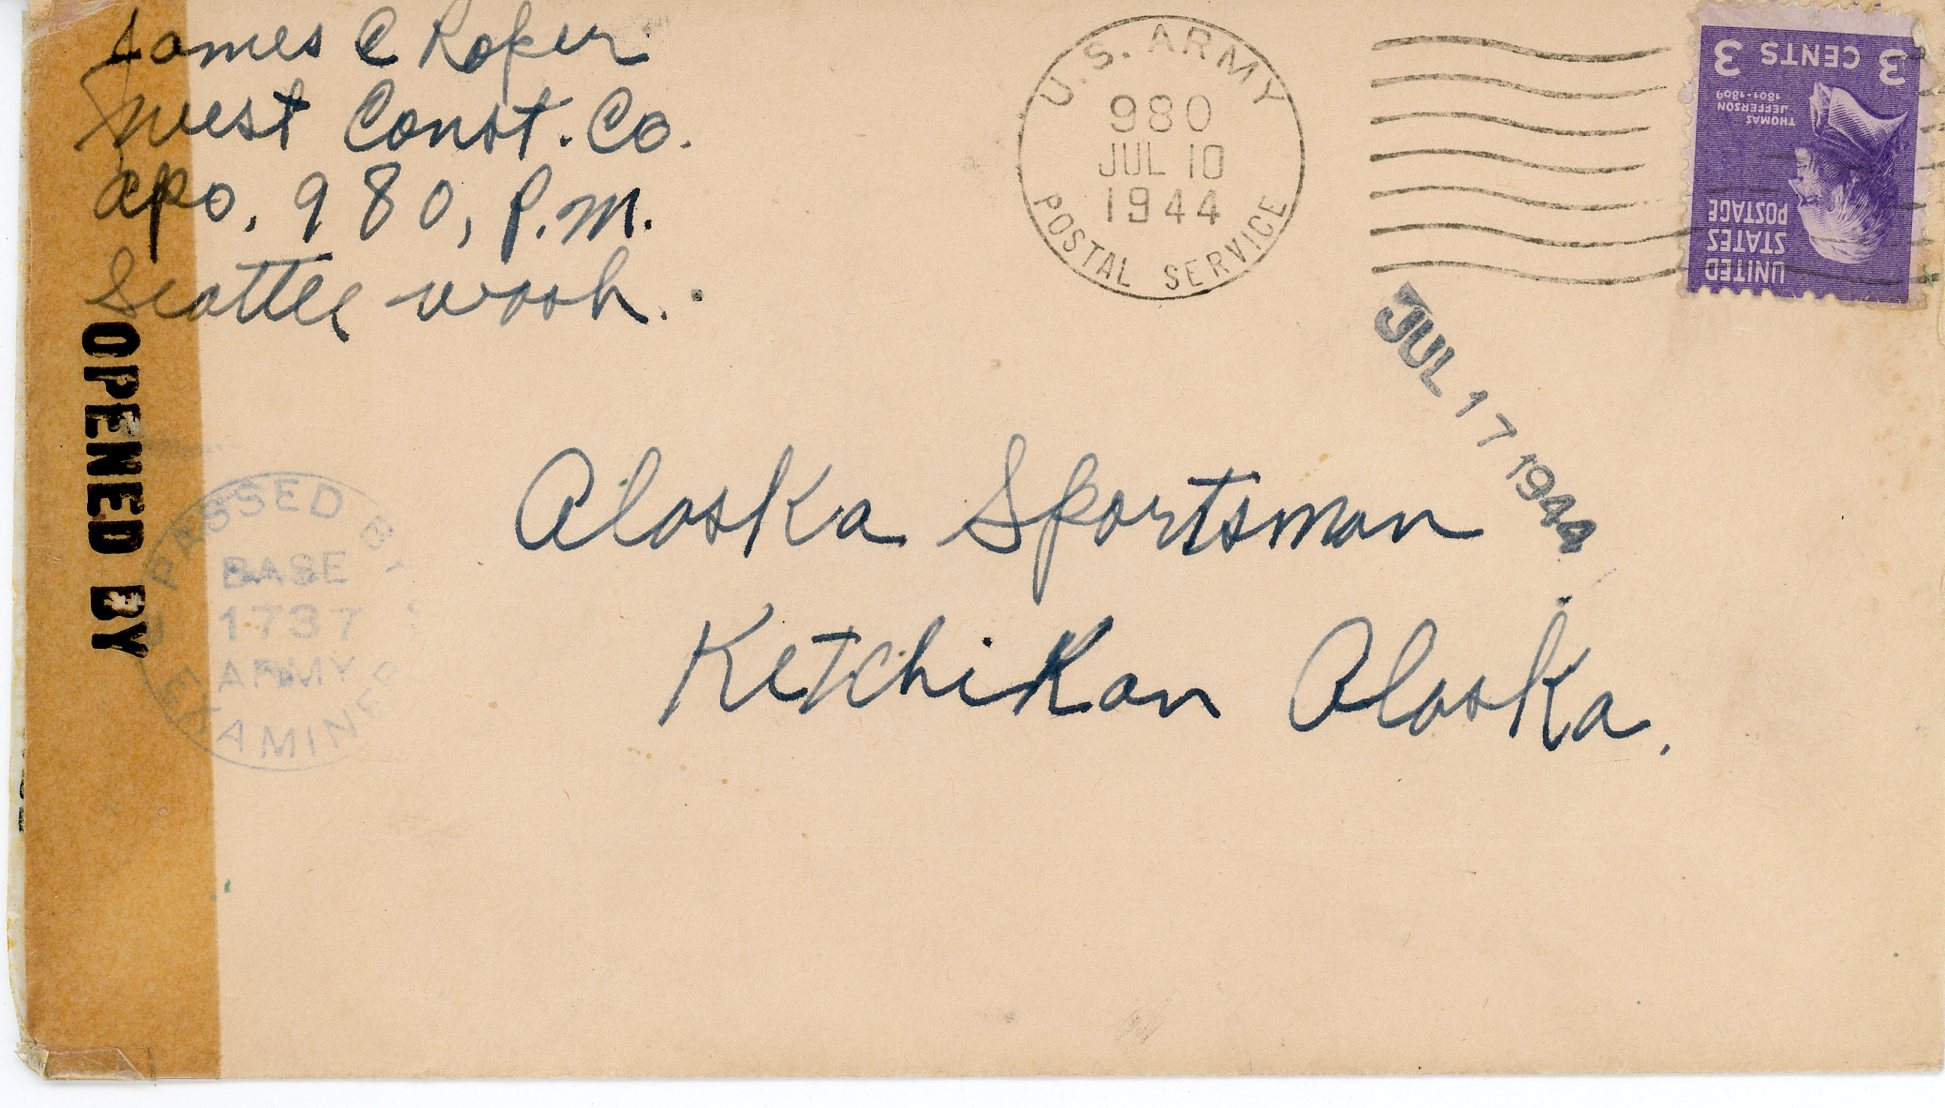 James C Roper
West Const. Co.
apo, 980, P.M.
Seattle Wash.
U.S. ARMY
980
JUL 10
1944
POSTAL SERVICE
3 CENTS 3
THOMAS
JEFFERSON
1801-1809
UNITED
STATES
POSTAGE
JUL 17 1944
OPENED BY
PASSED BY
BASE
1737
ARMY
EXAMINER
Alaska Sportsman
Ketchikan Alaska.